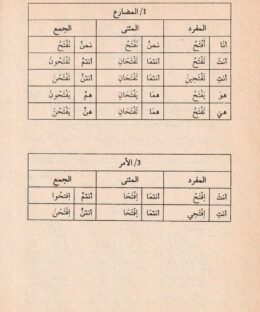 1/ المضارع
المفرد المثنى الجمع
أنَا أَفْتَحُ نَحنُ نَفْتَحُ نَحنُ نَفْتَحُ
أنتَ تَفْتَحُ أنتمَا تَفْتَحَانِ أنتمْ تَفْتَحُونَ
أنتِ تَفْتَحِينَ أنتمَا تَفْتَحَانِ أنتنَّ تَفْتَحْنَ
هوَ يَفْتَحُ همَا يَفْتَحَانِ همْ يَفْتَحُونَ
هيَ تَفْتَحُ همَا تَفْتَحَانِ هنَّ يَفْتَحْنَ
3/ الأمر
المفرد المثنى الجمع
أنتَ اِفْتَحْ أنتمَا اِفْتَحَا أنتمْ اِفْتَحُوا
أنتِ اِفْتَحِي أنتمَا اِفْتَحَا أنتنَّ اِفْتَحْنَ